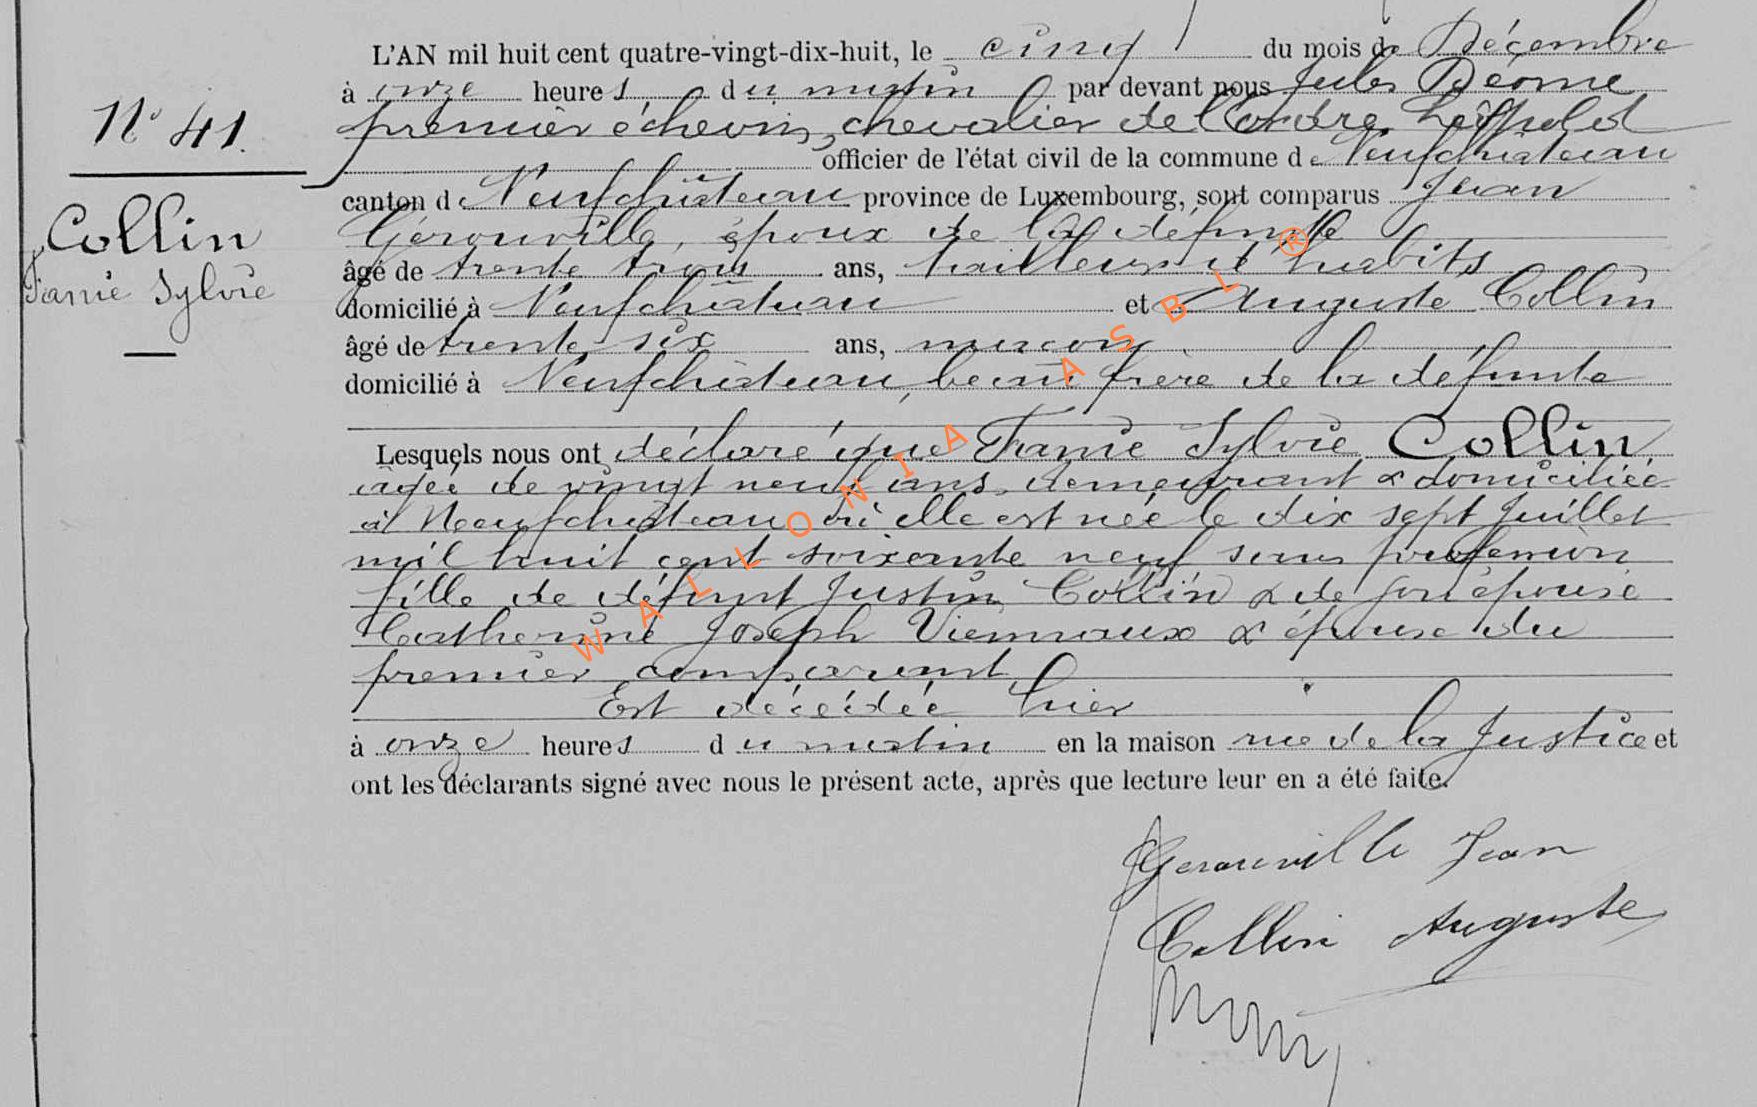 L'AN mil huit cent quatre-vingt-dix-huit, le cinq du mois de Décembre
à onze heures du matin par devant nous Jules Déome
N° 41. premier échevin, chevalier de l'ordre Léopold
officier de l'état civil de la commune de Neufchâteau
canton de Neufchâteau province de Luxembourg, sont comparus Jean
Collin Gérouville, époux de la défunte
Fanie Sylvie âgé de trente trois ans, tailleur d'habits
domicilié à Neufchâteau et Auguste Collin
âgé de trente six ans, maçon
domicilié à Neufchâteau, beau frère de la défunte
Lesquels nous ont déclaré que Fanie Sylvie Collin
âgée de vingt neuf ans, demeurant & domiciliée
à Neufchâteau où elle est née le dix sept Juillet
mil huit cent soixante neuf sans profession
fille de défunt Justin Collin & de son épouse
Catherine Joseph Viennaux & épouse du
premier comparant.
Est décédée hier
à onze heures du matin en la maison rue de la Justice et
ont les déclarants signé avec nous le présent acte, après que lecture leur en a été faite.
Gerouville Jean
Collin Auguste
WALLONIA ASBL ®